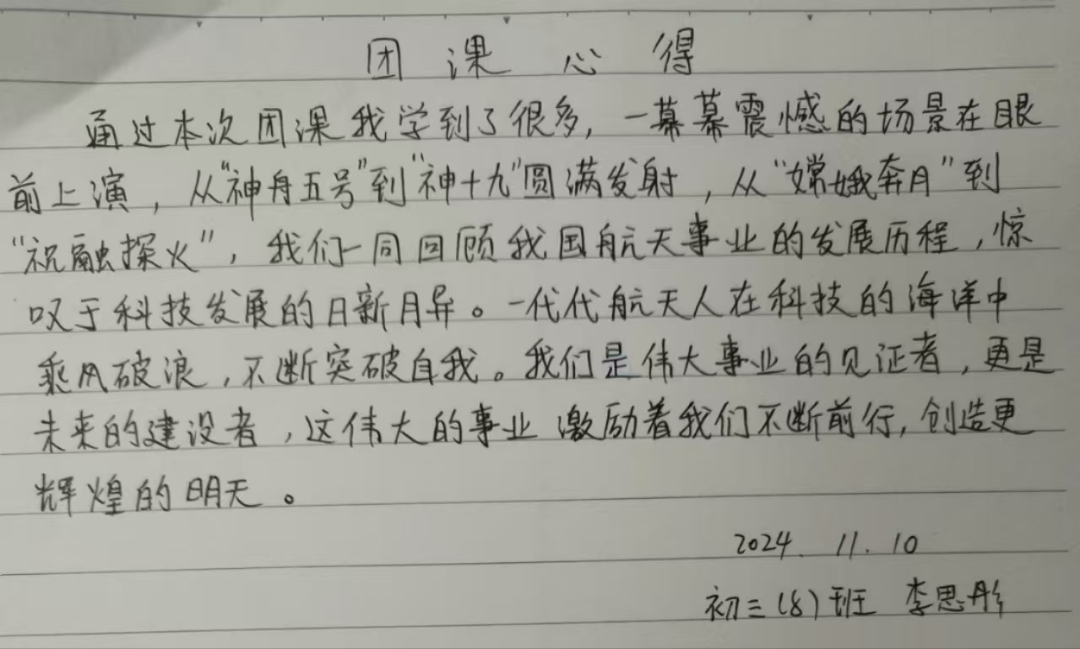 团课心得
通过本次团课我学到了很多，一幕幕震憾的场景在眼
前上演，从“神舟五号”到“神十九”圆满发射，从“嫦娥奔月”到
“祝融探火”，我们一同回顾我国航天事业的发展历程，惊
叹于科技发展的日新月异。一代代航天人在科技的海洋中
乘风破浪，不断突破自我。我们是伟大事业的见证者，更是
未来的建设者，这伟大的事业激励着我们不断前行，创造更
辉煌的明天。
2024.11.10
初三(8)班 李思彤